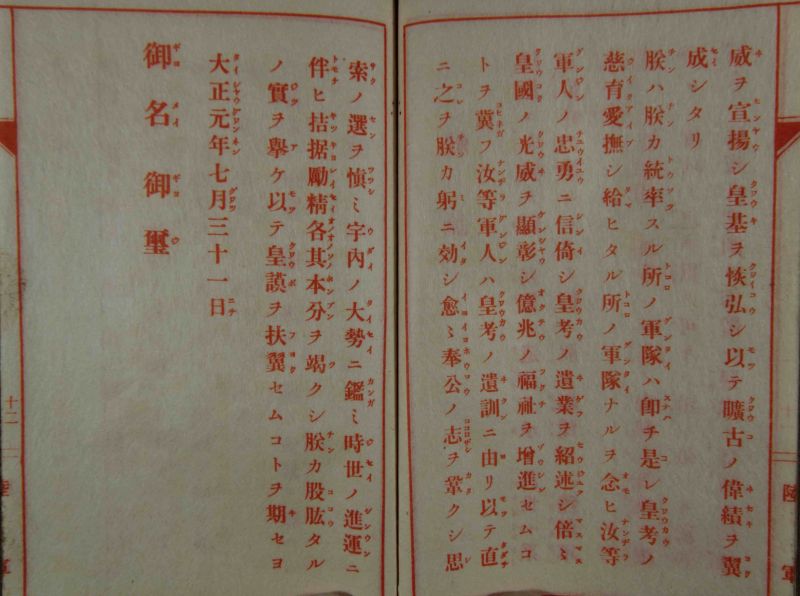 威ヲ宣揚シ皇基ヲ恢弘シ以テ曠古ノ偉績ヲ翼
成シタリ
朕ハ朕カ統率スル所ノ軍隊ハ卽チ是レ皇考ノ
慈育愛撫シ給ヒタル所ノ軍隊ナルヲ念ヒ汝等
軍人ノ忠勇ニ信倚シ皇考ノ遺業ヲ紹述シ倍ミ
皇國ノ光威ヲ顯彰シ億兆ノ福祉ヲ增進セムコ
トヲ冀フ汝等軍人ハ皇考ノ遺訓ニ由リ以テ直
ニ之ヲ朕カ躬ニ効シ愈ミ奉公ノ志ヲ鞏クシ思
索ノ選ヲ愼ミ宇內ノ大勢ニ鑑ミ時世ノ進運ニ
伴ヒ拮据勵精各其本分ヲ竭クシ朕カ股肱タル
ノ實ヲ擧ケ以テ皇謨ヲ扶翼セムコトヲ期セヨ
大正元年七月三十一日
御名御璽
十二